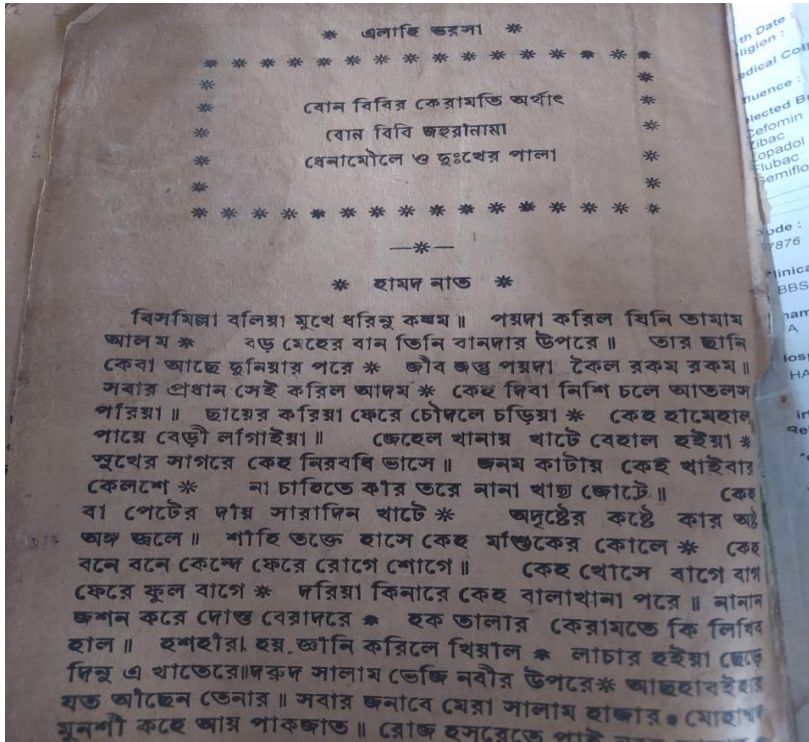 * এলাহি ভরসা *
বোন বিবির কেরামতি অর্থাৎ
বোন বিবি জহুরানামা
ধোনামৌলে ও দুঃখের পালা
—*—
* হামদ নাত *
বিসমিল্লা বলিয়া মুখে ধরিনু কলম॥ পয়দা করিল যিনি তামাম
আলম * বড় মেহের বান তিনি বানদার উপরে॥ তার ছানি
কেবা আছে দুনিয়ার পরে * জীব জন্তু পয়দা কৈল রকম রকম॥
সবার প্রধান সেই করিল আদম * কেহ দিবা নিশি চলে আতলস
পরিয়া॥ ছায়ের করিয়া ফেরে চৌদলে চড়িয়া * কেহ হামেহাল
পায়ে বেড়ী লাগাইয়া॥ জেহেল খানায় খাটে বেহাল হইয়া *
সুখের সাগরে কেহ নিরবধি ভাসে॥ জনম কাটায় কেই খাইবার
কেলশে * না চাহিতে কার তরে নানা খাদ্য জোটে॥ কেহ
বা পেটের দায় সারাদিন খাটে * অদৃষ্টের কষ্টে কার অষ্ট
অঙ্গ জলে॥ শাহি তক্তে হাসে কেহ মাশুকের কোলে * কেহ
বনে বনে কেন্দে ফেরে রোগে শোগে॥ কেহ খোসে বাগে বাগ
ফেরে ফুল বাগে * দরিয়া কিনারে কেহ বালাখানা পরে॥ নানান
জশন করে দোস্ত বেরাদরে * হক তালার কেরামতে কি লিখিব
হাল॥ হশহারা হয় জ্ঞানি করিলে খিয়াল * লাচার হইয়া ছেড়ে
দিনু এ খাতেরে॥দরুদ সালাম ভেজি নবীর উপরে* আছহাব
যত আছেন তেনার॥ সবার জনাবে মেরা সালাম হাজার * মোহাম্মদ
মুনশী কহে আয় পাকজাত॥ রোজ হসরেতে
th Date :
ligion :
edical Coll
fluence :
lected B
Cefomin
Zibac
opadol
Flubac
Semiflo
ode :
7876
linica
BBS
nam
A
HA